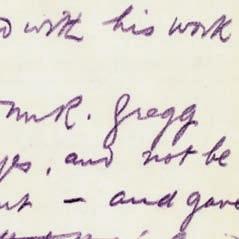 with his work
Mr R. Gregg
yes, and not be
out — and gave